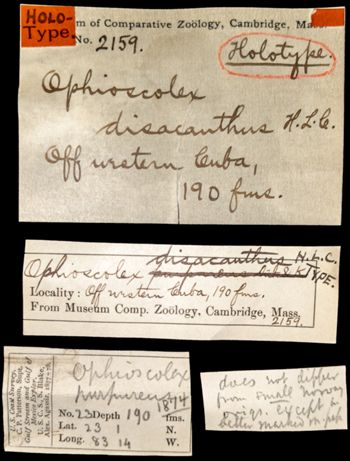 HOLO-
TYPE.
m of Comparative Zoölogy, Cambridge, Mass.
No. 2159.
Holotype.
Ophioscolex
disacanthus H.L.C.
Off western Cuba,
190 fms.
disacanthus H.L.C.
Ophioscolex purpureus YPE.
Locality: Off western Cuba, 190 fms.
From Museum Comp. Zoölogy, Cambridge, Mass.
2159.
U. S. Coast Survey,
C. P. Patterson, Supt.
Gulf Stream and Gulf of
Mexico Explor.
U. S. C. S. S. Blake,
Alex. Agassiz, 1877-78.
Ophioscolex
purpureus
1874
No. 23 Depth 190 fms.
Lat. 23 1 N.
Long. 83 14 W.
does not differ
from small Norway
origs. except in
better marked on pap